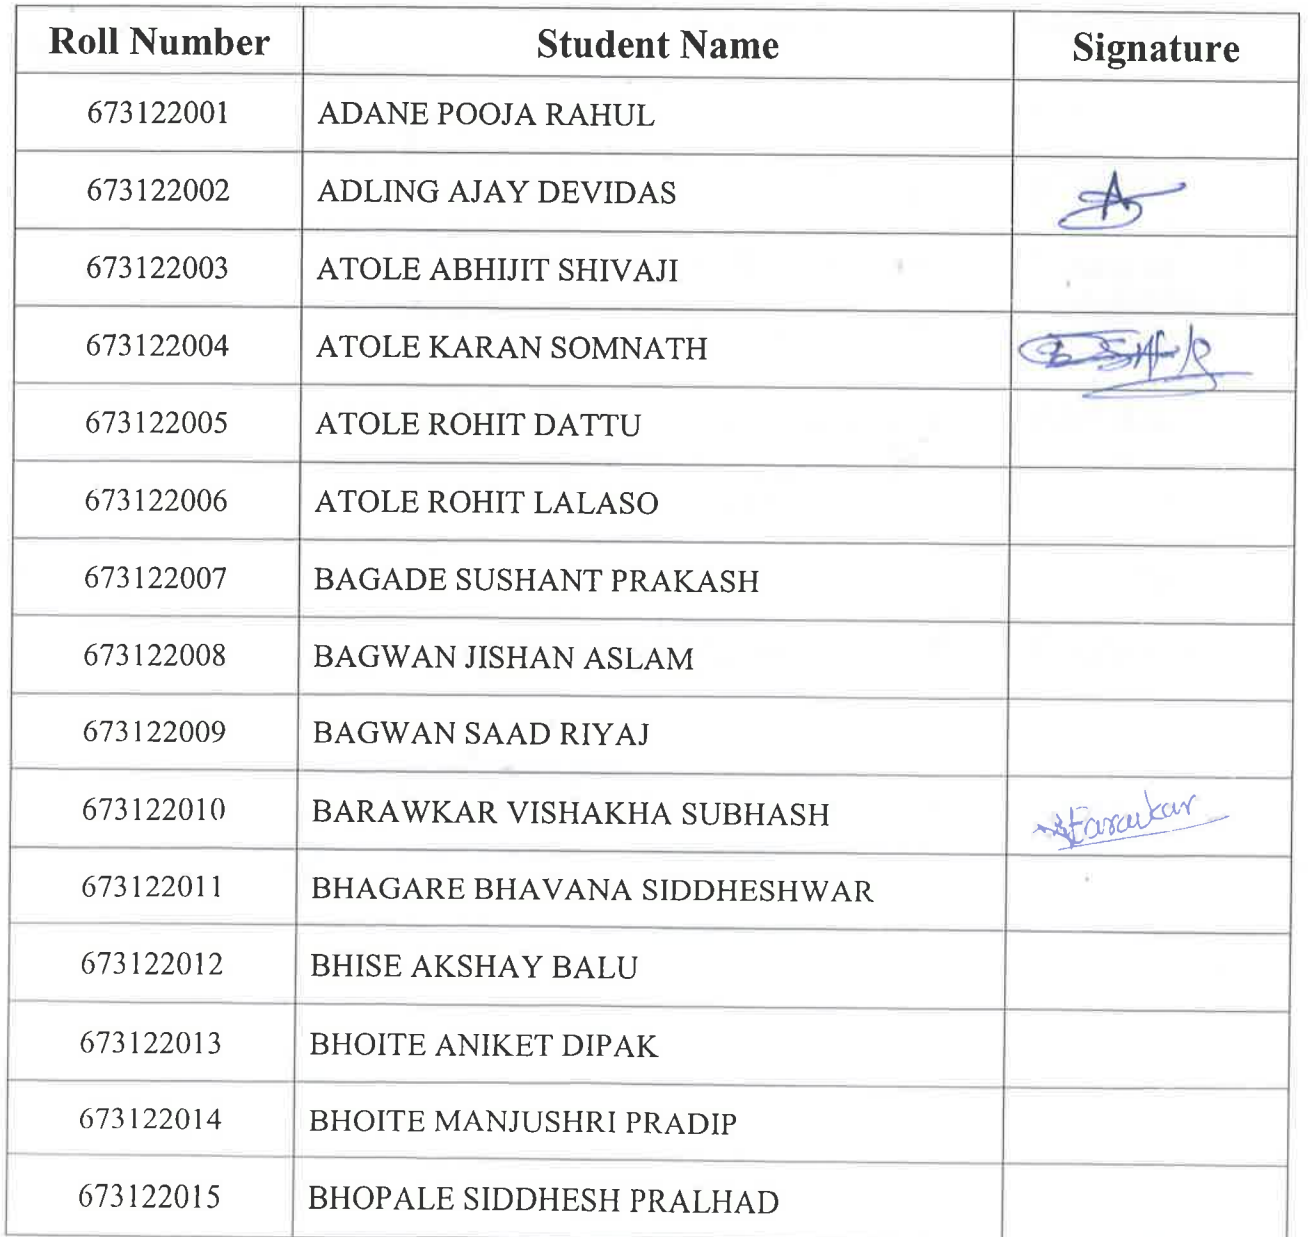 Roll Number Student Name Signature
673122001 ADANE POOJA RAHUL
673122002 ADLING AJAY DEVIDAS
673122003 ATOLE ABHIJIT SHIVAJI
673122004 ATOLE KARAN SOMNATH
673122005 ATOLE ROHIT DATTU
673122006 ATOLE ROHIT LALASO
673122007 BAGADE SUSHANT PRAKASH
673122008 BAGWAN JISHAN ASLAM
673122009 BAGWAN SAAD RIYAJ
673122010 BARAWKAR VISHAKHA SUBHASH
673122011 BHAGARE BHAVANA SIDDHESHWAR
673122012 BHISE AKSHAY BALU
673122013 BHOITE ANIKET DIPAK
673122014 BHOITE MANJUSHRI PRADIP
673122015 BHOPALE SIDDHESH PRALHAD